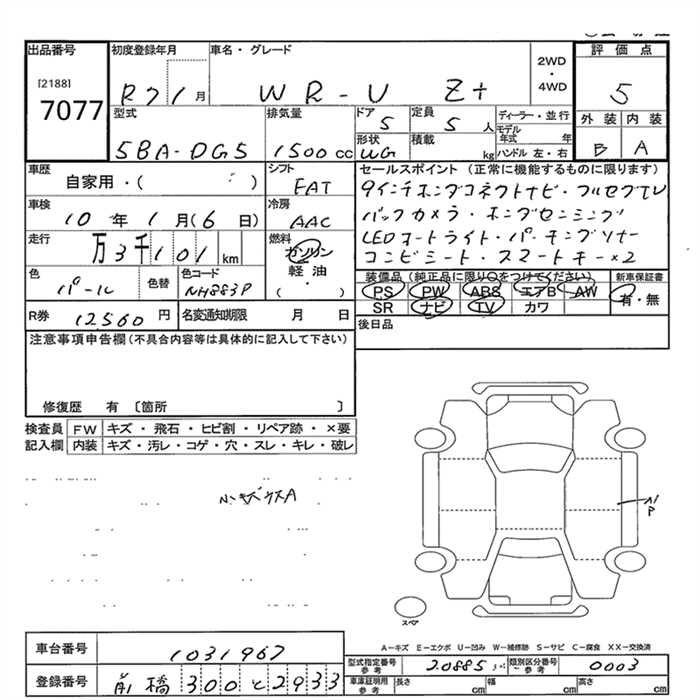 出品番号
[2188]
7077
初度登録年月
R7 1月
車名・グレード
WR-V Z+
2WD
・
4WD
評価点
5
外装 内装
B A
型式
5BA-DG5
排気量
1500cc
ドア
5
定員
5人
ディーラー・並行
形状
WG
積載
kg
モデル年式 年
ハンドル 左・右
車歴
自家用・( )
シフト
FAT
セールスポイント(正常に機能するものに限ります)
9インチホンダコネクトナビ・フルセグTV
バックカメラ・ホンダセンシング
LEDオートライト・パーキングソナー
コンビシート・スマートキー×2
車検
10年1月(6日)
冷房
AAC
走行
万3千101km
燃料
ガソリン
軽油
・
( )
色
パール
色替
色コード
NH883P
装備品(純正品に限り○をつけてください)
PS PW ABS エアB AW
SR ナビ TV カワ
新車保証書
有・無
R券 12560円
名変通知期限 月 日
後日品
注意事項申告欄(不具合内容等は具体的に記入して下さい)
修復歴 有〔箇所 〕
検査員 FW キズ・飛石・ヒビ割・リペア跡・×要
記入欄 内装 キズ・汚レ・コゲ・穴・スレ・キレ・破レ
小キズウスA
A1
P
スペア
A−キズ E−エクボ U−凹み W−補修跡 S−サビ C−腐食 XX−交換済
車台番号 1031967
登録番号 前橋 300 と 2933
型式指定番号 参考 20885
類別区分番号 参考 0003
車庫証明用 参考 長さ cm 幅 cm 高さ cm